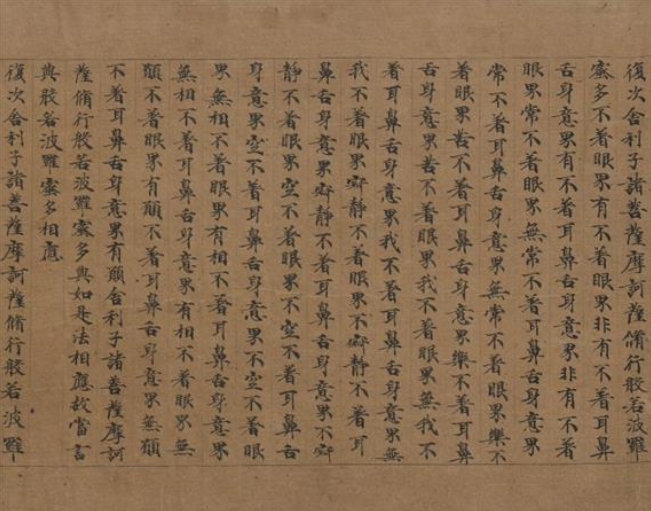 復次舍利子諸菩薩摩訶薩脩行般若波羅
蜜多不著眼界有不著眼界非有不著耳鼻
舌身意界有不著耳鼻舌身意界非有不著
眼界常不著眼界無常不著耳鼻舌身意界
常不著耳鼻舌身意界無常不著眼界樂不
著眼界苦不著耳鼻舌身意界樂不著耳鼻
舌身意界苦不著眼界我不著眼界無我不
著耳鼻舌身意界我不著耳鼻舌身意界無
我不著眼界寂靜不著眼界不寂靜不著耳
鼻舌身意界寂靜不著耳鼻舌身意界不寂
靜不著眼界空不著眼界不空不著耳鼻舌
身意界空不著耳鼻舌身意界不空不著眼
界無相不著眼界有相不著耳鼻舌身意界
無相不著耳鼻舌身意界有相不著眼界無
願不著眼界有願不著耳鼻舌身意界無願
不著耳鼻舌身意界有願舍利子諸菩薩摩訶
薩脩行般若波羅蜜多與如是法相應故當言
與般若波羅蜜多相應
復次舍利子諸菩薩摩訶薩脩行般若波羅